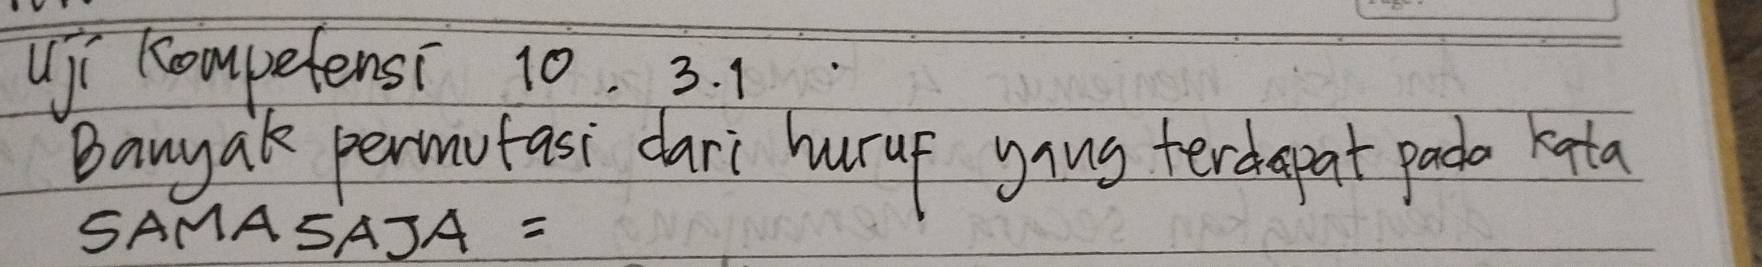 Uji Kompetensi 10. 3.1
Banyak permutasi dari huruf yang terdapat pada kata
SAMA SAJA =